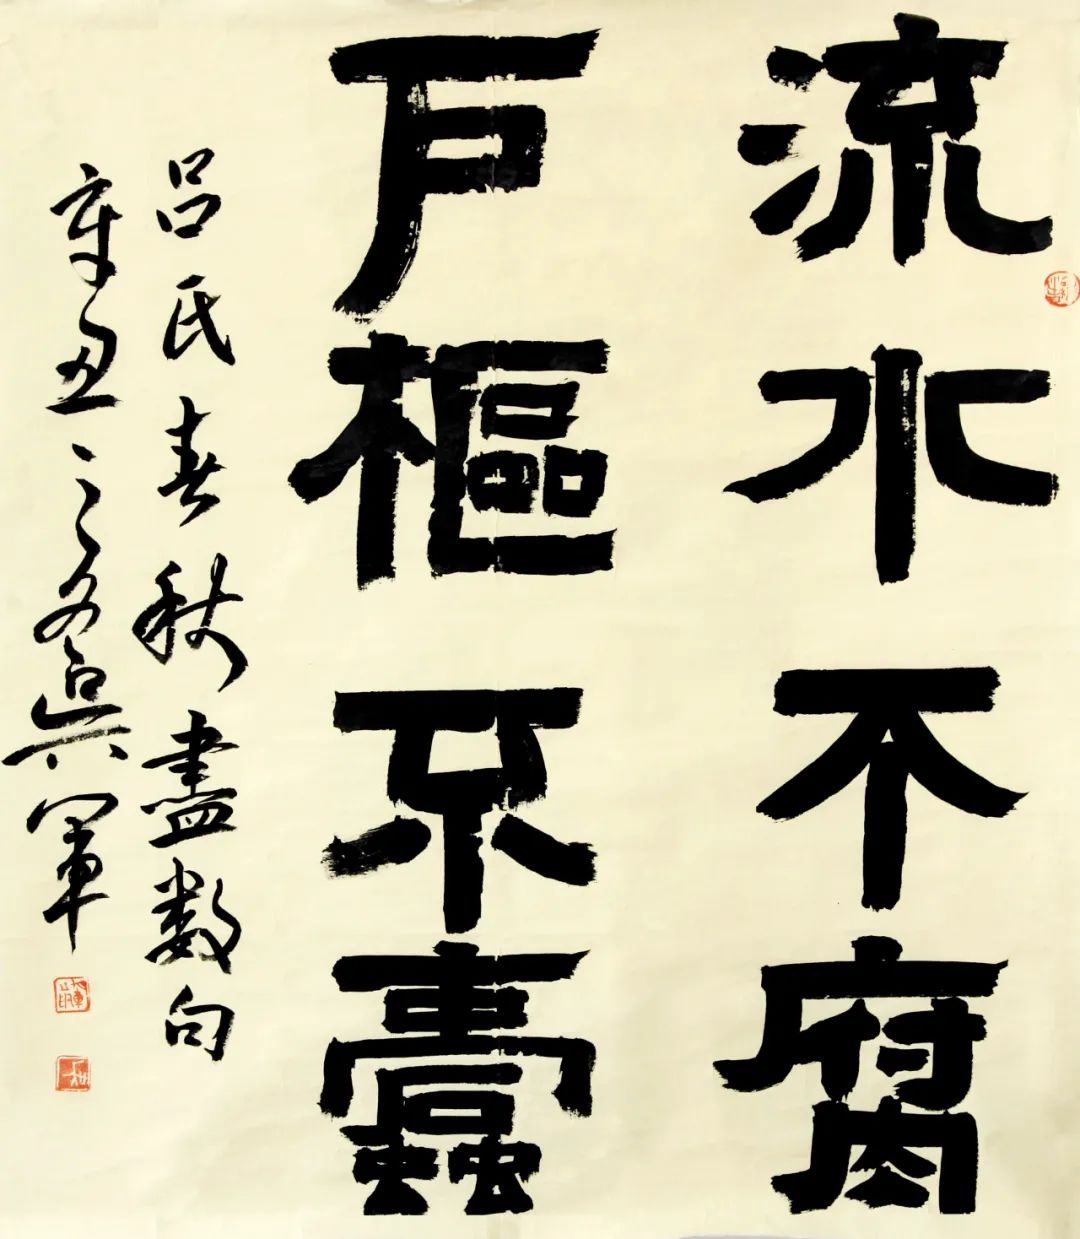 流水不腐
户樞不蠹
吕氏春秋盡數句
辛丑之軍